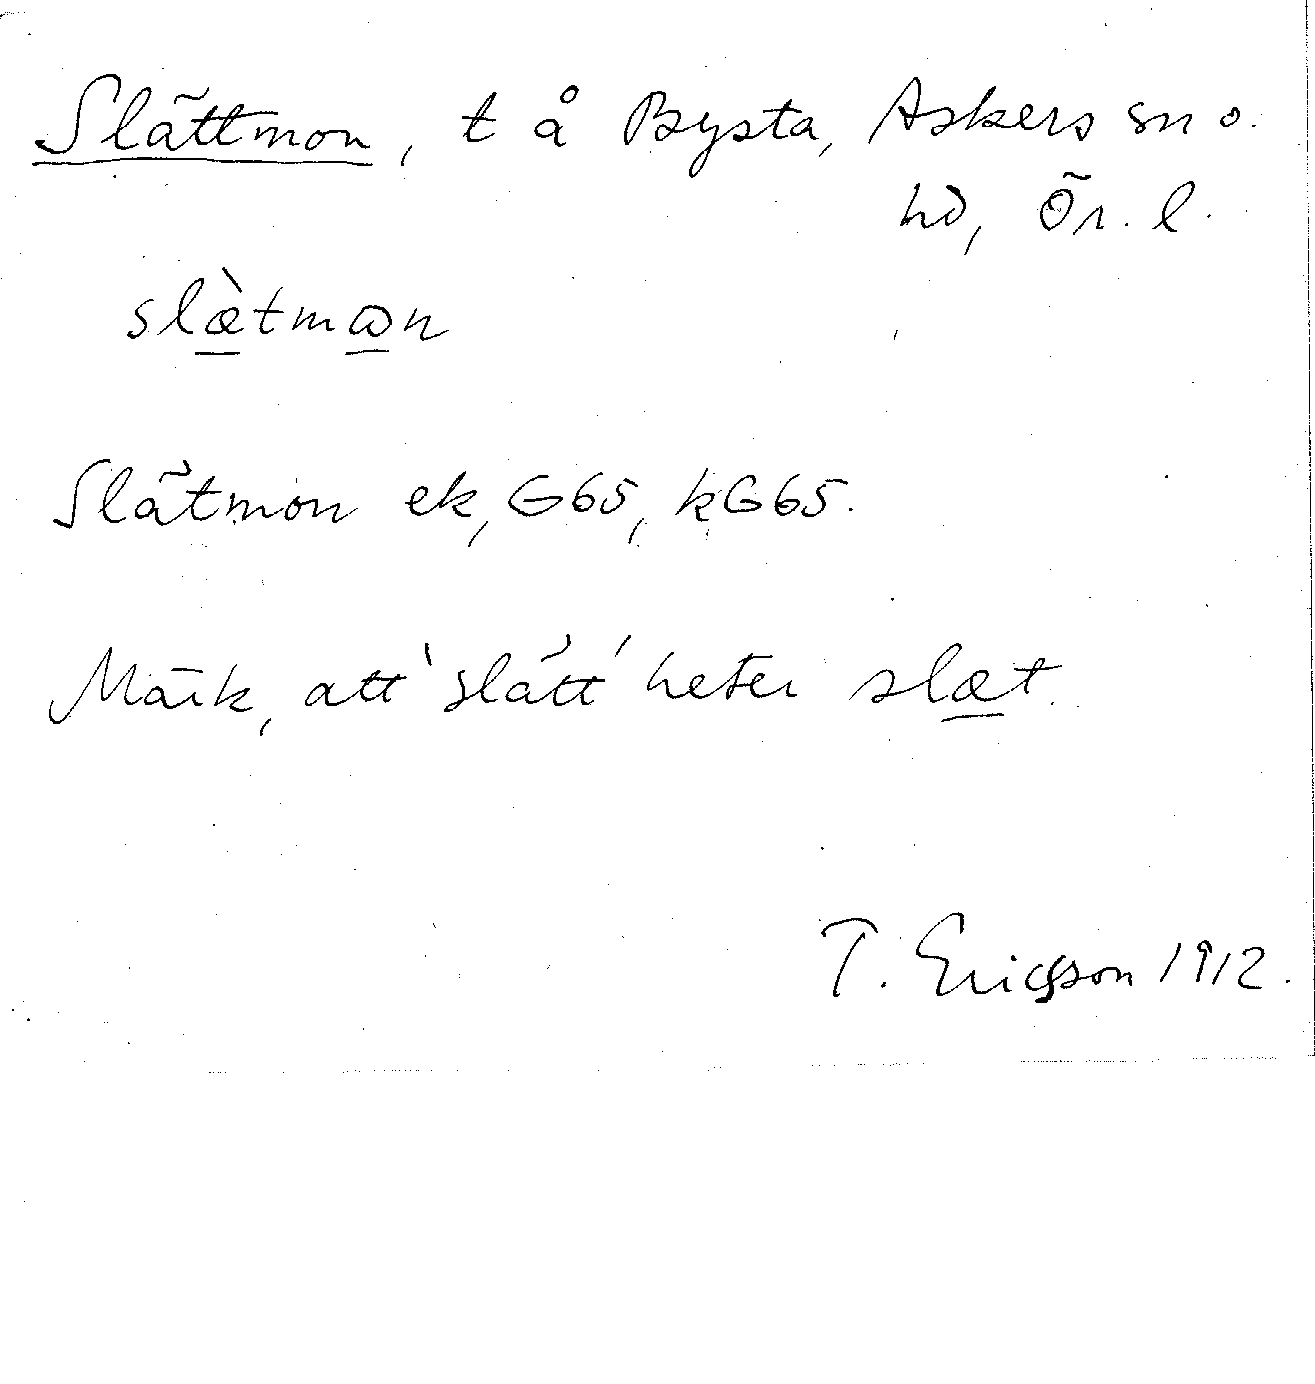 Slättmon, t å Bysta, Askers sn o.
hd, Ör. l.
slæ̀tmωn
Slätmon ek, G65, kG65.
Märk, att 'slått' heter slæt.
T. Ericsson 1912.